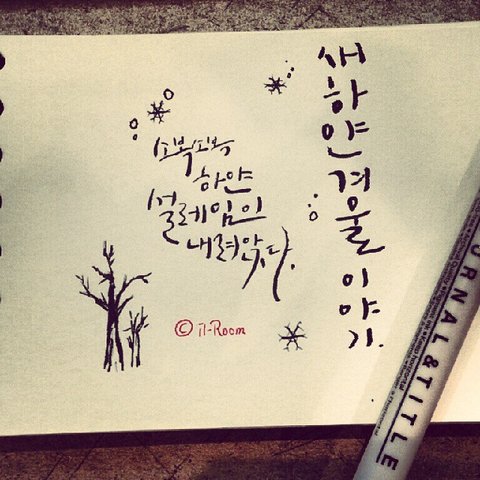 새하얀 겨울 이야기.
소복소복
하얀
설레임이
내려앉다.
©
URNAL & TITLE